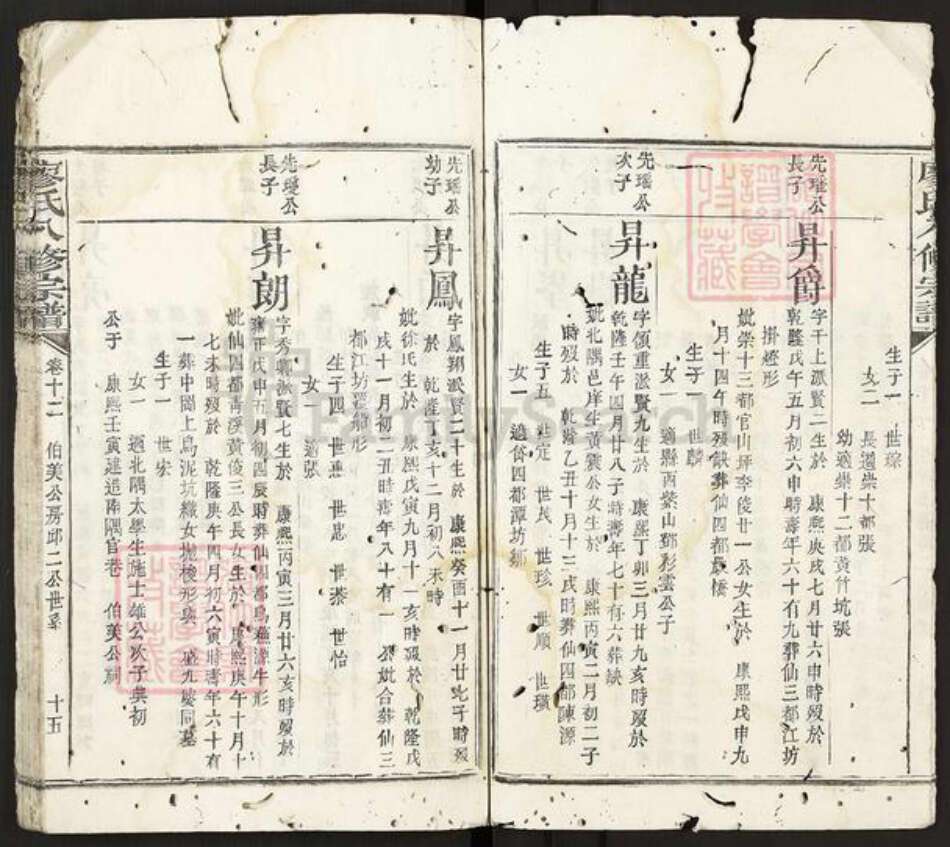 廖氏八修宗譜
生子一 世琮
女二 長適崇十都張
幼適崇十二都黃竹坑張
先瑤公長子
昇爵
字于上派賢二生於 康熙庚戌七月廿六申時歿於
乾隆戊午五月初六申時壽年六十有九葬仙三都江坊
掛燈形
妣崇十三都官山坪李俊廿一公女生於 康熙戊申九
月十四午時歿缺葬仙四都長橋
生子一 世麟
女一 適縣西紫山鄧彩雲公子
先瑤公次子
昇龍
字領重派賢九生於 康熙丁卯三月廿九亥時歿於
乾隆壬午四月廿八子時壽年七十有六葬缺
妣北隅邑庠生黃雲公女生於 康熙丙寅二月初二子
時歿於 乾隆乙丑十月十三戌時葬仙四都陳源
生子五 世定 世民 世珍 世順 世璜
女一 適食四都潭坊鄒
先瑤公幼子
昇鳳
字鳳翔派賢二十生於 康熙癸酉十一月廿七子時歿
於 乾隆丁亥十二月初八未時
妣徐氏生於 康熙戊寅九月十一亥時歿於 乾隆戊
戌十一月初二丑時壽年八十有一 公妣合葬仙三
都江坊覆船形
生子四 世憲 世忠 世泰 世怡
女 適張
先瑾公長子
昇朗
字秀郭派賢七生於 康熙丙寅三月廿六亥時歿於
雍正戊申五月初四辰時葬仙四都烏燕游牛形
妣仙四都青溪黃俊三公長女生於 康熙庚午十月十
七未時歿於 乾隆庚午四月初六寅時壽年六十有
一葬中閣上烏泥坑織女拋梭形與 盛九婆同墓
生子一 世宏
女一 適北隅太學生施士雄公次子奠初
公于 康熙壬寅建造南隅官巷 伯美公祠
廖氏八修宗譜
卷十二 伯美公房邱二公世系 十五
譜學會
收藏